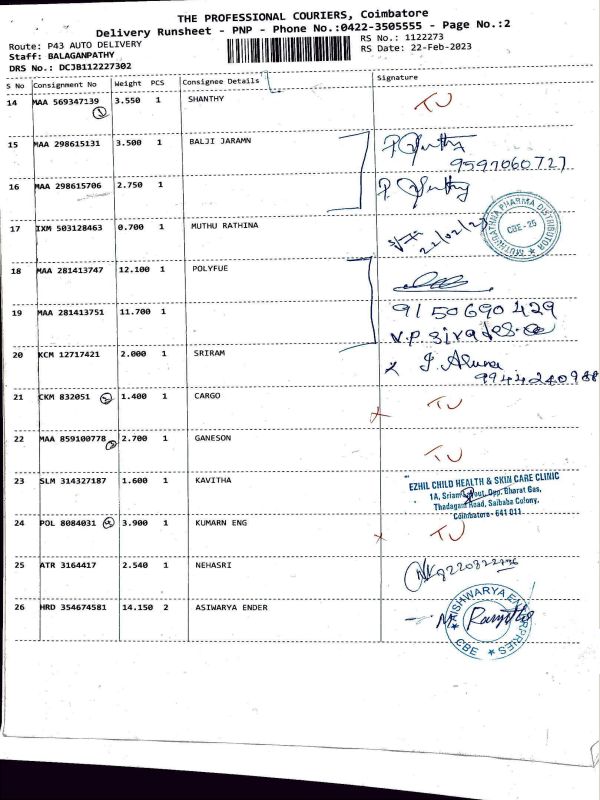 THE PROFESSIONAL COURIERS, Coimbatore
Delivery Runsheet - PNP - Phone No.:0422-3505555 - Page No.:2
Route: P43 AUTO DELIVERY RS No.: 1122273
Staff: BALAGANPATHY RS Date: 22-Feb-2023
DRS No.: DCJB112227302
S No Consignment No Weight PCS Consignee Details Signature
14 MAA 569347139 3.550 1 SHANTHY TU
1
15 MAA 298615131 3.500 1 BALJI JARAMN
9597060727
16 MAA 298615706 2.750 1
17 IXM 503128463 0.700 1 MUTHU RATHINA 22/02/23
MUTHURATHNA PHARMA DISTRIBUTOR
CBE-25
18 MAA 281413747 12.100 1 POLYFUE
19 MAA 281413751 11.700 1 9150690429
V.P.
20 KCM 12717421 2.000 1 SRIRAM
9944240988
21 CKM 832051 2 1.400 1 CARGO x TU
22 MAA 859100778 3 2.700 1 GANESON TU
23 SLM 314327187 1.600 1 KAVITHA
EZHIL CHILD HEALTH & SKIN CARE CLINIC
1A, Sriam Layout, Opp. Bharat Gas,
Thadagam Road, Saibaba Colony,
Coimbatore - 641 011
24 POL 8084031 4 3.900 1 KUMARN ENG x TU
25 ATR 3164417 2.540 1 NEHASRI
26 HRD 354674581 14.150 2 ASIWARYA ENDER
AISHWARYA ENTERPRISES
CBE